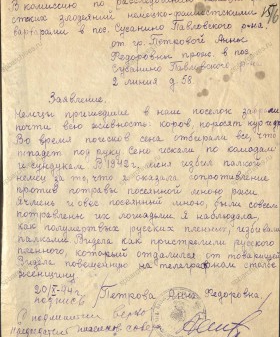 В комиссию по расследованию
злодеяний немецко-фашистскими
варварами в пос. Сусанино Павловского р-на
от гр. Петровой Анны
Федоровны прож в пос.
Сусанино Павловского р-на
2 линия д. 58
Заявление.
Немцы пришедшие в наш поселок забрали
почти всю живность коров, поросят кур и др
Во время поисков сена отбирали все, что
попадет под руку Сено искали по комодам
и сундукам В 1942 г. меня избил палкой
немец за то, что я оказала сопротивление
против потравы посеянной мною ржи
Ячмень и овес посеянный мною, были совсем
потравлены их лошадьми Я наблюдала,
как полумертвых русских пленных, избивали
палками Видела как пристрелили русского
пленного, который отдалился от товарищей
Видела повешенную на телеграфном столбе
женщину
20/X-94
подпись Петрова Анна Федоровна.
С подлинным верно
Председатель поселков совета